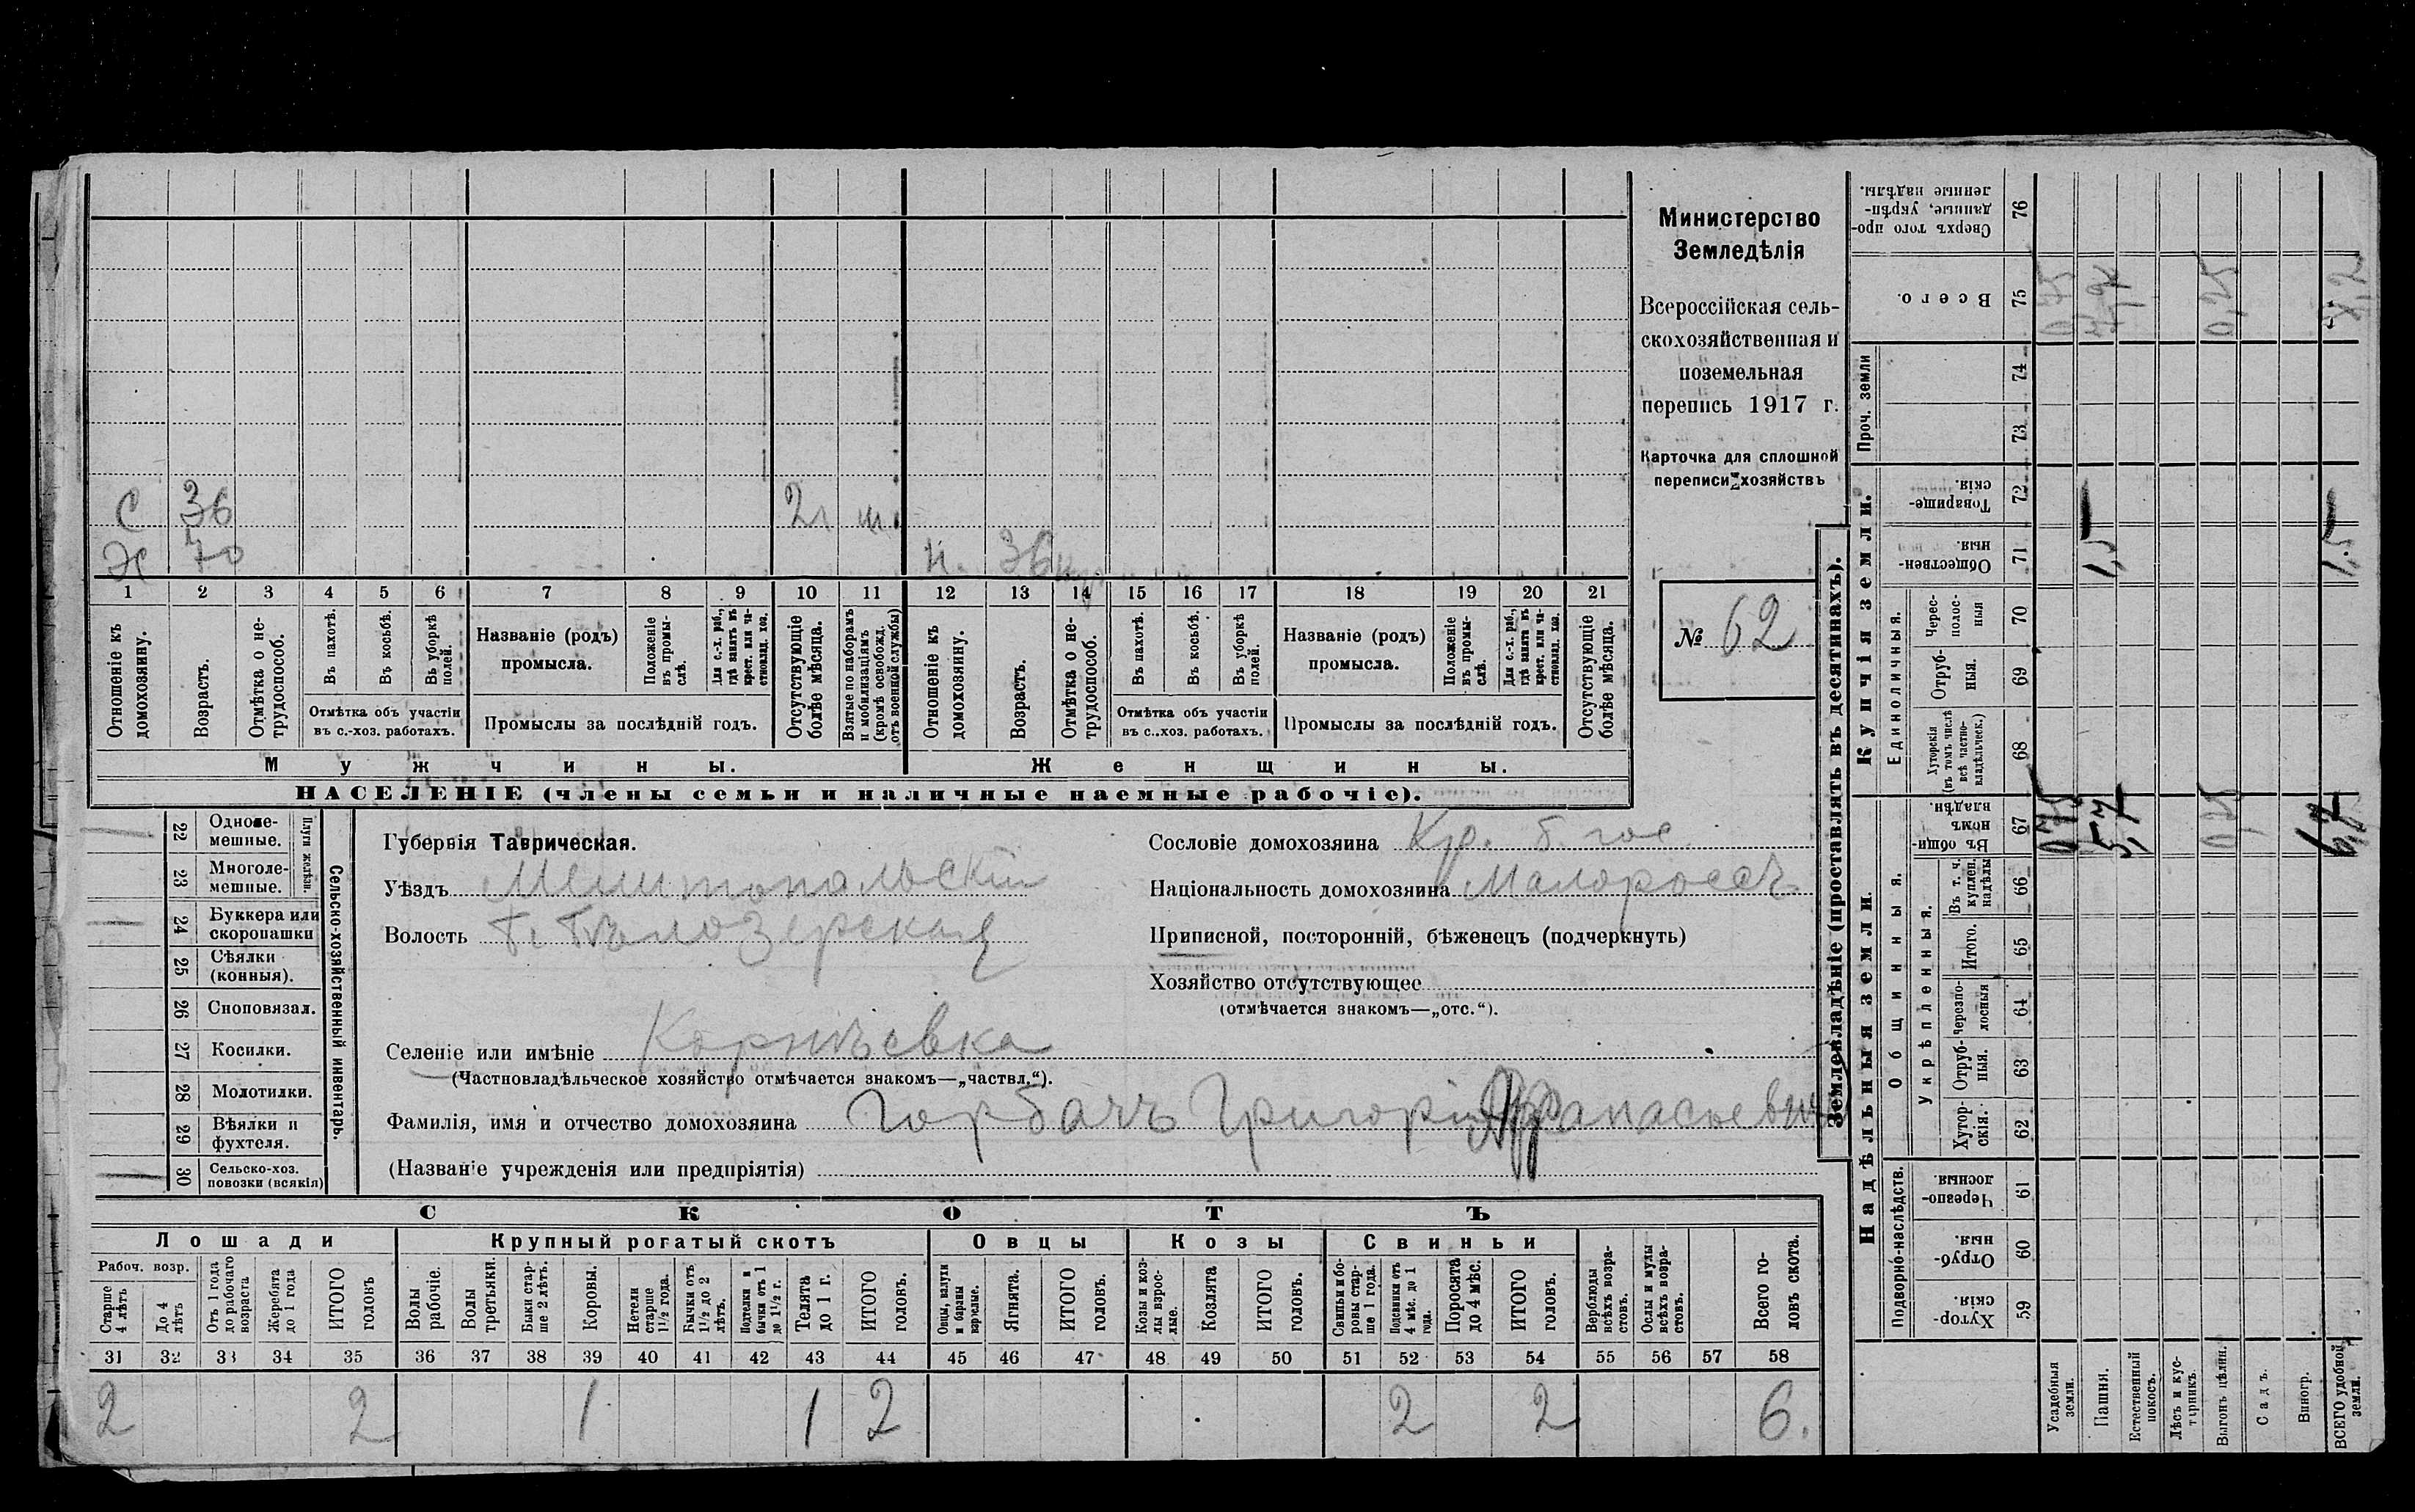 Министерство
Земледѣлія
Всероссійская сель-
скохозяйственная и
поземельная
перепись 1917 г.
Карточка для сплошной
переписи хозяйствъ
№ 62
С 36 2 г.
Х 70 36
1 2 3 4 5 6 7 8 9 10 11 12 13 14 15 16 17 18 19 20 21
Отношеніе къ домохозяину.
Возрастъ.
Отмѣтка о не-трудоспособ.
Въ пахотѣ.
Въ косьбѣ.
Въ уборкѣ полей.
Отмѣтка объ участіи
въ с.-хоз. работахъ.
Названіе (родъ)
промысла.
Положеніе въ промы-слѣ.
Для с.-х. раб., гдѣ занятъ въ крест. или ча-стновлад. хоз.
Промыслы за послѣдній годъ.
Отсутствующіе болѣе мѣсяца.
Взятые по наборамъ и мобилизаціямъ (кромѣ освобожд. отъ военной службы)
Отношеніе къ домохозяину.
Возрастъ.
Отмѣтка о не-трудоспособ.
Въ пахотѣ.
Въ косьбѣ.
Въ уборкѣ полей.
Отмѣтка объ участіи
въ с.-хоз. работахъ.
Названіе (родъ)
промысла.
Положеніе въ промы-слѣ.
Для с.-х. раб., гдѣ занятъ въ крест. или ча-стновлад. хоз.
Промыслы за послѣдній годъ.
Отсутствующіе болѣе мѣсяца.
Мужчины.
Женщины.
НАСЕЛЕНІЕ (члены семьи и наличные наемные рабочіе).
22 Одноле-мешные.
23 Многоле-мешные.
Плуги желѣзн.
24 Буккера или скоропашки
25 Сѣялки (конныя).
26 Сноповязал.
27 Косилки.
28 Молотилки.
29 Вѣялки и фухтеля.
30 Сельско-хоз. повозки (всякія)
Сельско-хозяйственный инвентарь.
Губернія Таврическая.
Уѣздъ Мелитопольскій
Волость Б. Бѣлозерская
Селеніе или имѣніе Корнѣевка
(Частновладѣльческое хозяйство отмѣчается знакомъ—„частвл.“).
Фамилія, имя и отчество домохозяина Горбачъ Григорій Афанасьевичъ
(Названіе учрежденія или предпріятія)
Сословіе домохозяина Кр. б. гос.
Національность домохозяина Малороссъ
Приписной, посторонній, бѣженецъ (подчеркнуть)
Хозяйство отсутствующее
(отмѣчается знакомъ—„отс.“).
СКОТЪ
Лошади
Крупный рогатый скотъ
Овцы
Козы
Свиньи
Рабоч. возр.
Старше 4 лѣтъ
До 4 лѣтъ
Отъ 1 года до рабочаго возраста
Жеребята до 1 года
ИТОГО головъ
Волы рабочіе.
Волы третьяки.
Быки стар-ше 2 лѣтъ.
Коровы.
Нетели старше 1½ года.
Бычки отъ 1½ до 2 лѣтъ.
Подтелки и бычки отъ 1 до 1½ г.
Телята до 1 г.
ИТОГО головъ.
Овцы, валухи и бараны взрослые.
Ягнята.
ИТОГО головъ.
Козы и коз-лы взрос-лые.
Козлята
ИТОГО головъ.
Свиньи и бо-ровы стар-ше 1 года.
Подсвинки отъ 4 мѣс. до 1 года.
Поросята до 4 мѣс.
ИТОГО головъ.
Верблюды всѣхъ возра-стовъ.
Ослы и мулы всѣхъ возра-стовъ.
Всего го-ловъ скота.
31 32 33 34 35 36 37 38 39 40 41 42 43 44 45 46 47 48 49 50 51 52 53 54 55 56 57 58
2 2 1 1 2 2 2 6.
Землевладѣніе (проставлять въ десятинахъ).
Надѣльныя земли.
Купчія земли.
Проч. земли
Подворно-наслѣдств.
Общинныя.
Укрѣпленныя.
Единоличныя.
Хутор-скія 59
Отруб-ныя. 60
Черезпо-лосныя. 61
Хутор-скія. 62
Отруб-ныя. 63
Черезпо-лосныя 64
Итого. 65
Въ т. ч. куплен. надѣлы 66
Въ общин-номъ владѣн. 67
Хуторскія (въ томъ числѣ всѣ частно-владѣльческ.) 68
Отруб-ныя. 69
Черес-полос-ныя 70
Обществен-ныя. 71
Товарище-скія. 72
73
74
Всего. 75
Сверхъ того про-данные, укрѣп-ленные надѣлы. 76
Усадебныя земли. 0,75
Пашня. 1,5
Естественный покосъ.
Лѣсъ и кус-тарникъ.
Выгонъ цѣлин. 0,25 0,25
Садъ.
Виногр.
ВСЕГО удобной земли. 1,5 8,2